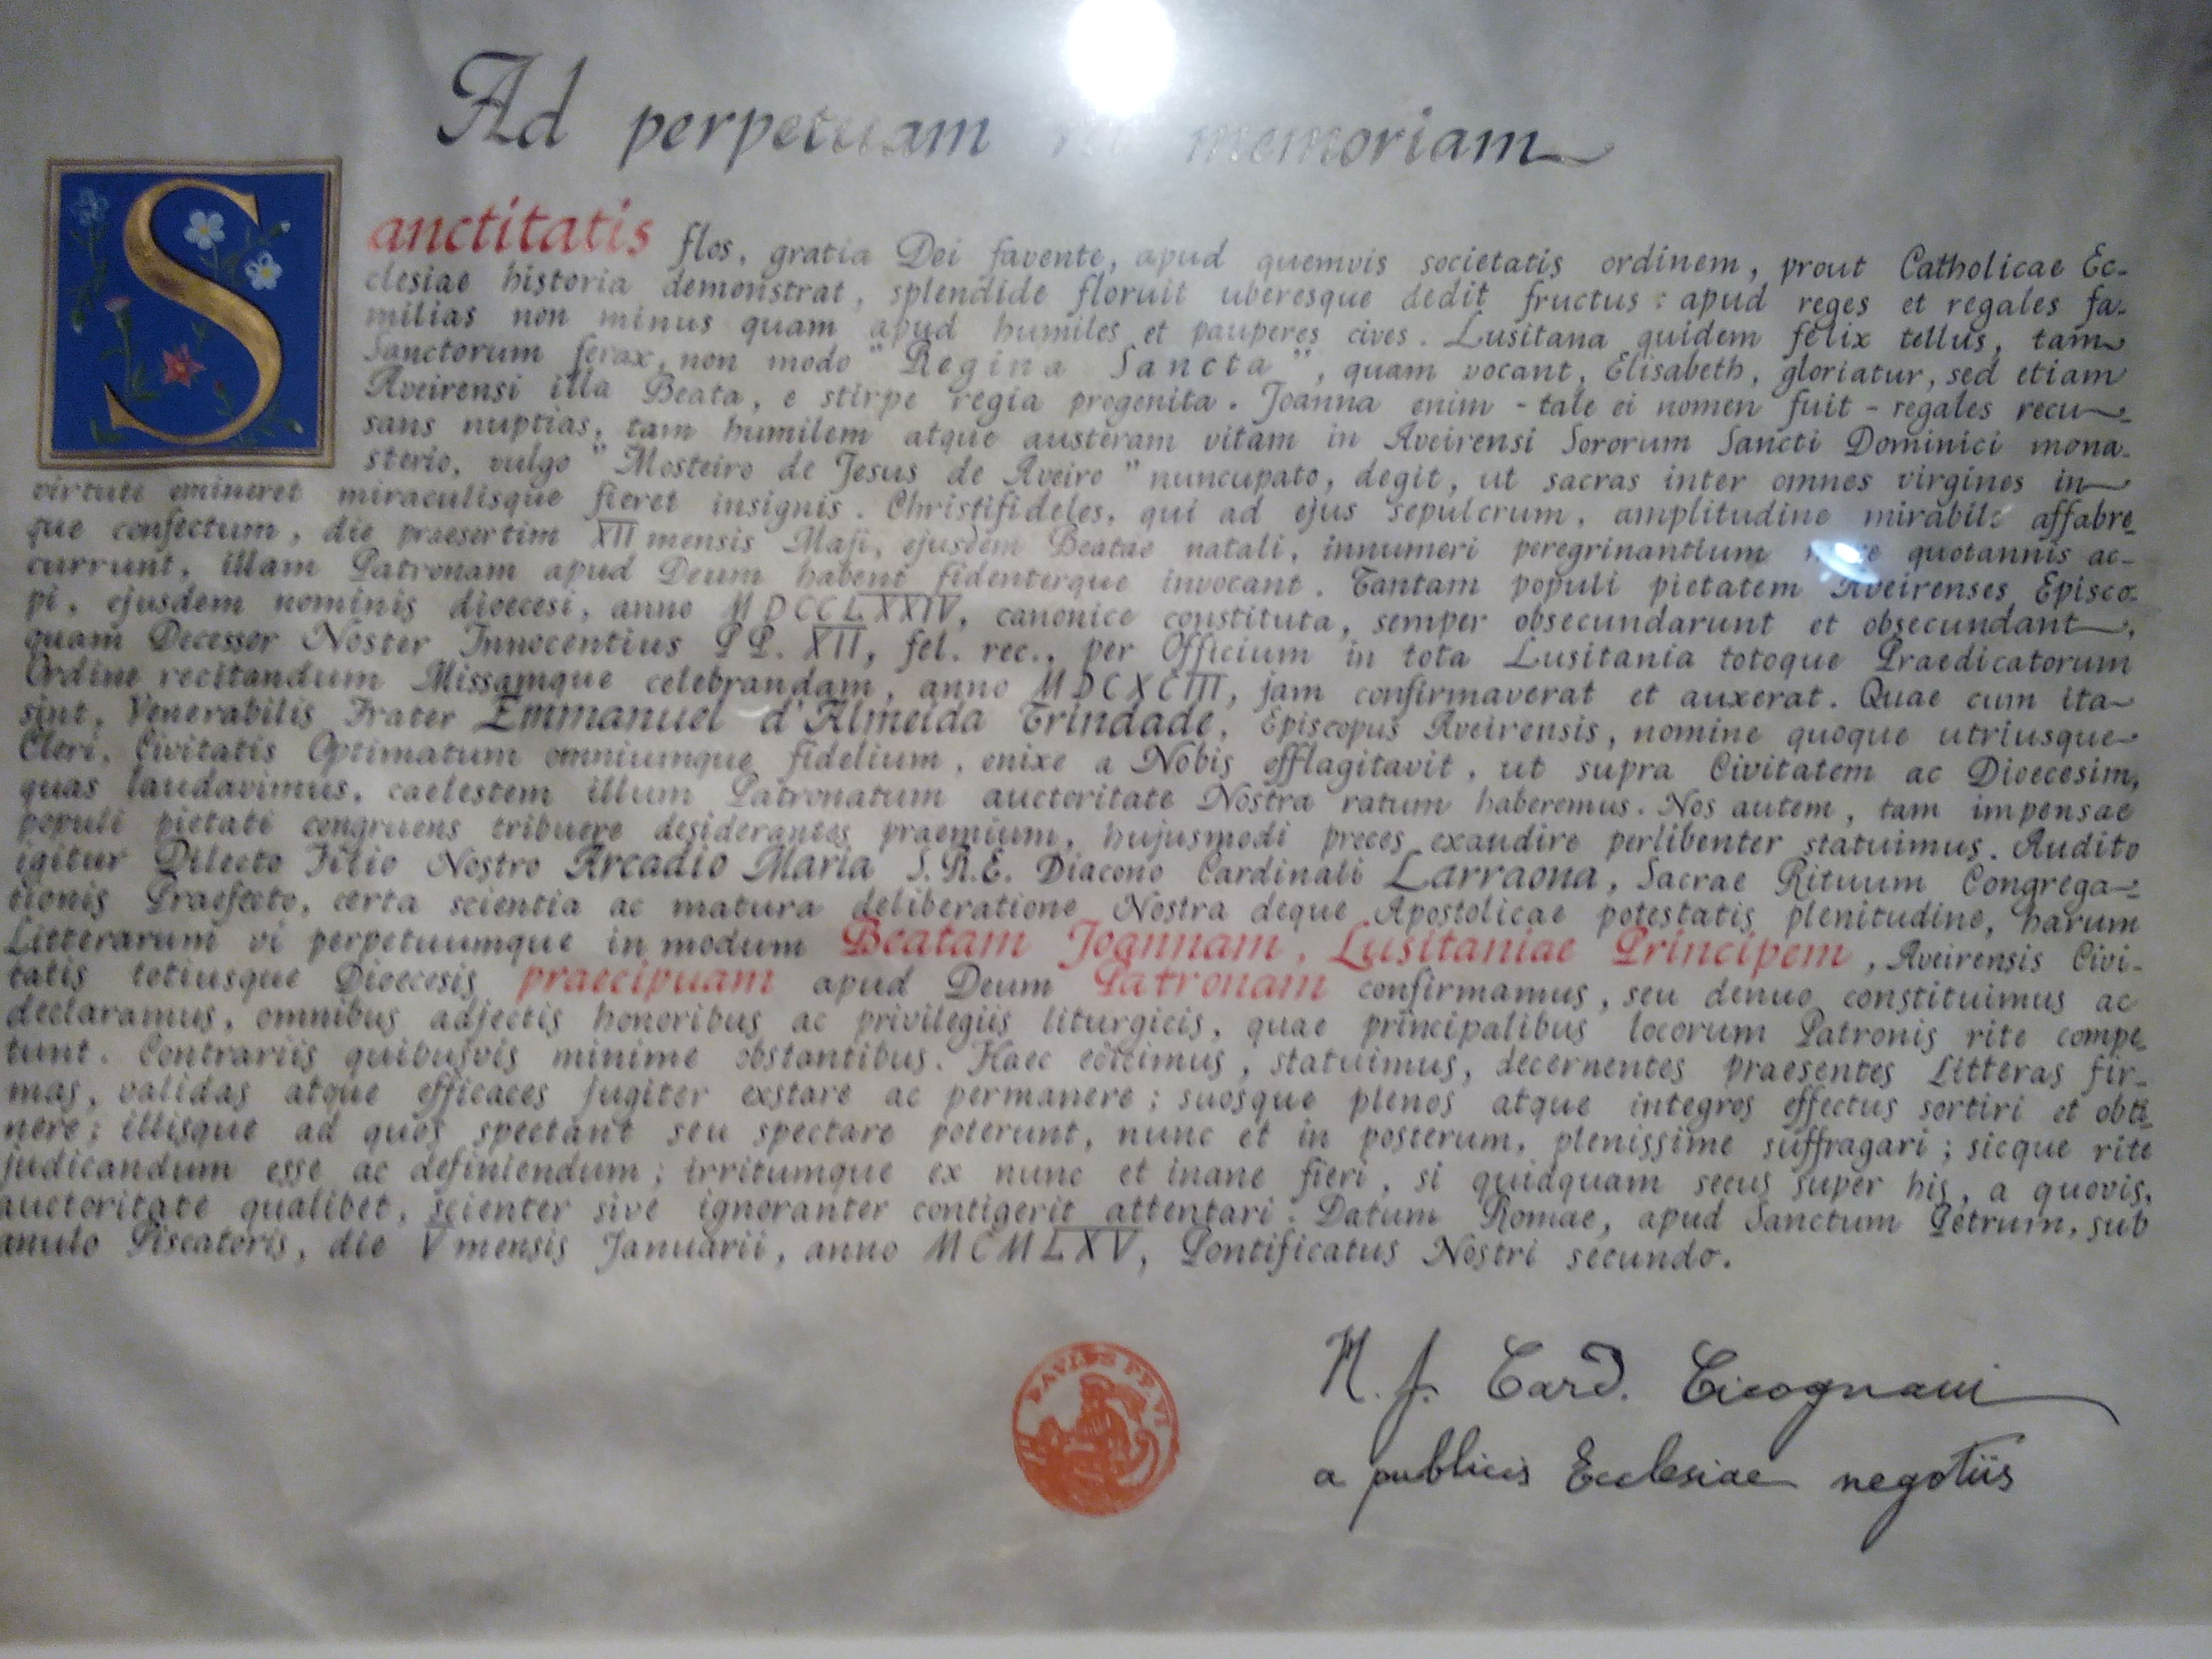 Ad perpetuam memoriam
Sanctitatis flos, gratia Dei favente, apud quemvis societatis ordinem, prout Catholicae Ec-
clesiae historia demonstrat, splendide floruit uberesque dedit fructus : apud reges et regales fa-
milias non minus quam apud humiles et pauperes cives. Lusitana quidem felix tellus, tam
Sanctorum ferax, non modo "Regina Sancta", quam vocant, Elisabeth, gloriatur, sed etiam
Aveirensi illa Beata, e stirpe regia progenita. Joanna enim - tale ei nomen fuit - regales recu-
sans nuptias, tam humilem atque austeram vitam in Aveirensi Sororum Sancti Dominici mona-
sterio, vulgo "Mosteiro de Jesus de Aveiro" nuncupato, degit, ut sacras inter omnes virgines in
virtute emineret miraculisque fieret insignis. Christifideles, qui ad ejus sepulcrum, amplitudine mirabile affabre-
que confectum, die praesertim XII mensis Maji, ejusdem Beatae natali, innumeri peregrinantium quotannis ac-
currunt, illam Patronam apud Deum habent fidenterque invocant. Tantam populi pietatem Aveirenses Episco-
pi, ejusdem nominis dioecesi, anno MDCCLXXIV, canonice constituta, semper obsecundarunt et obsecundant,
quam Decessor Noster Innocentius PP. XII, fel. rec., per Officium in tota Lusitania totoque Praedicatorum
Ordine recitandum Missamque celebrandam, anno MDCXCIII, jam confirmaverat et auxerat. Quae cum ita
sint, Venerabilis Frater Emmanuel d'Almeida Trindade, Episcopus Aveirensis, nomine quoque utriusque
Cleri, Civitatis Optimatum omniumque fidelium, enixe a Nobis efflagitavit, ut supra Civitatem ac Dioecesim,
quas laudavimus, caelestem illum Patronatum auctoritate Nostra ratum haberemus. Nos autem, tam impensae
populi pietati congruens tribuere desiderantes praemium, hujusmodi preces exaudire perlibenter statuimus. Audito
igitur Dilecto Filio Nostro Arcadio Maria S.R.E. Diacono Cardinali Larraona, Sacrae Rituum Congrega-
tionis Praefecto, certa scientia ac matura deliberatione Nostra deque Apostolicae potestatis plenitudine, harum
Litterarum vi perpetuumque in modum Beatam Joannam, Lusitaniae Principem, Aveirensis Civi-
tatis totiusque Dioecesis praecipuam apud Deum Patronam confirmamus, seu denuo constituimus ac
declaramus, omnibus adjectis honoribus ac privilegiis liturgicis, quae principalibus locorum Patronis rite compe-
tunt. Contrariis quibusvis minime obstantibus. Haec edicimus, statuimus, decernentes praesentes Litteras fir-
mas, validas atque efficaces jugiter exstare ac permanere ; suosque plenos atque integros effectus sortiri et obti-
nere ; illisque ad quos spectant seu spectare poterunt, nunc et in posterum, plenissime suffragari ; sicque rite
judicandum esse ac definiendum ; irritumque ex nunc et inane fieri, si quidquam secus super his, a quovis,
auctoritate qualibet, scienter sive ignoranter contigerit attentari. Datum Romae, apud Sanctum Petrum, sub
anulo Piscatoris, die V mensis Januarii, anno MCMLXV, Pontificatus Nostri secundo.
PAVLUS PP. VI
H. J. Card. Cicognani
a publicis Ecclesiae negotiis